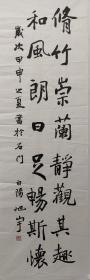 脩竹崇蘭靜觀其趣
和風朗日足暢斯懷
歲次甲申之夏書於石門